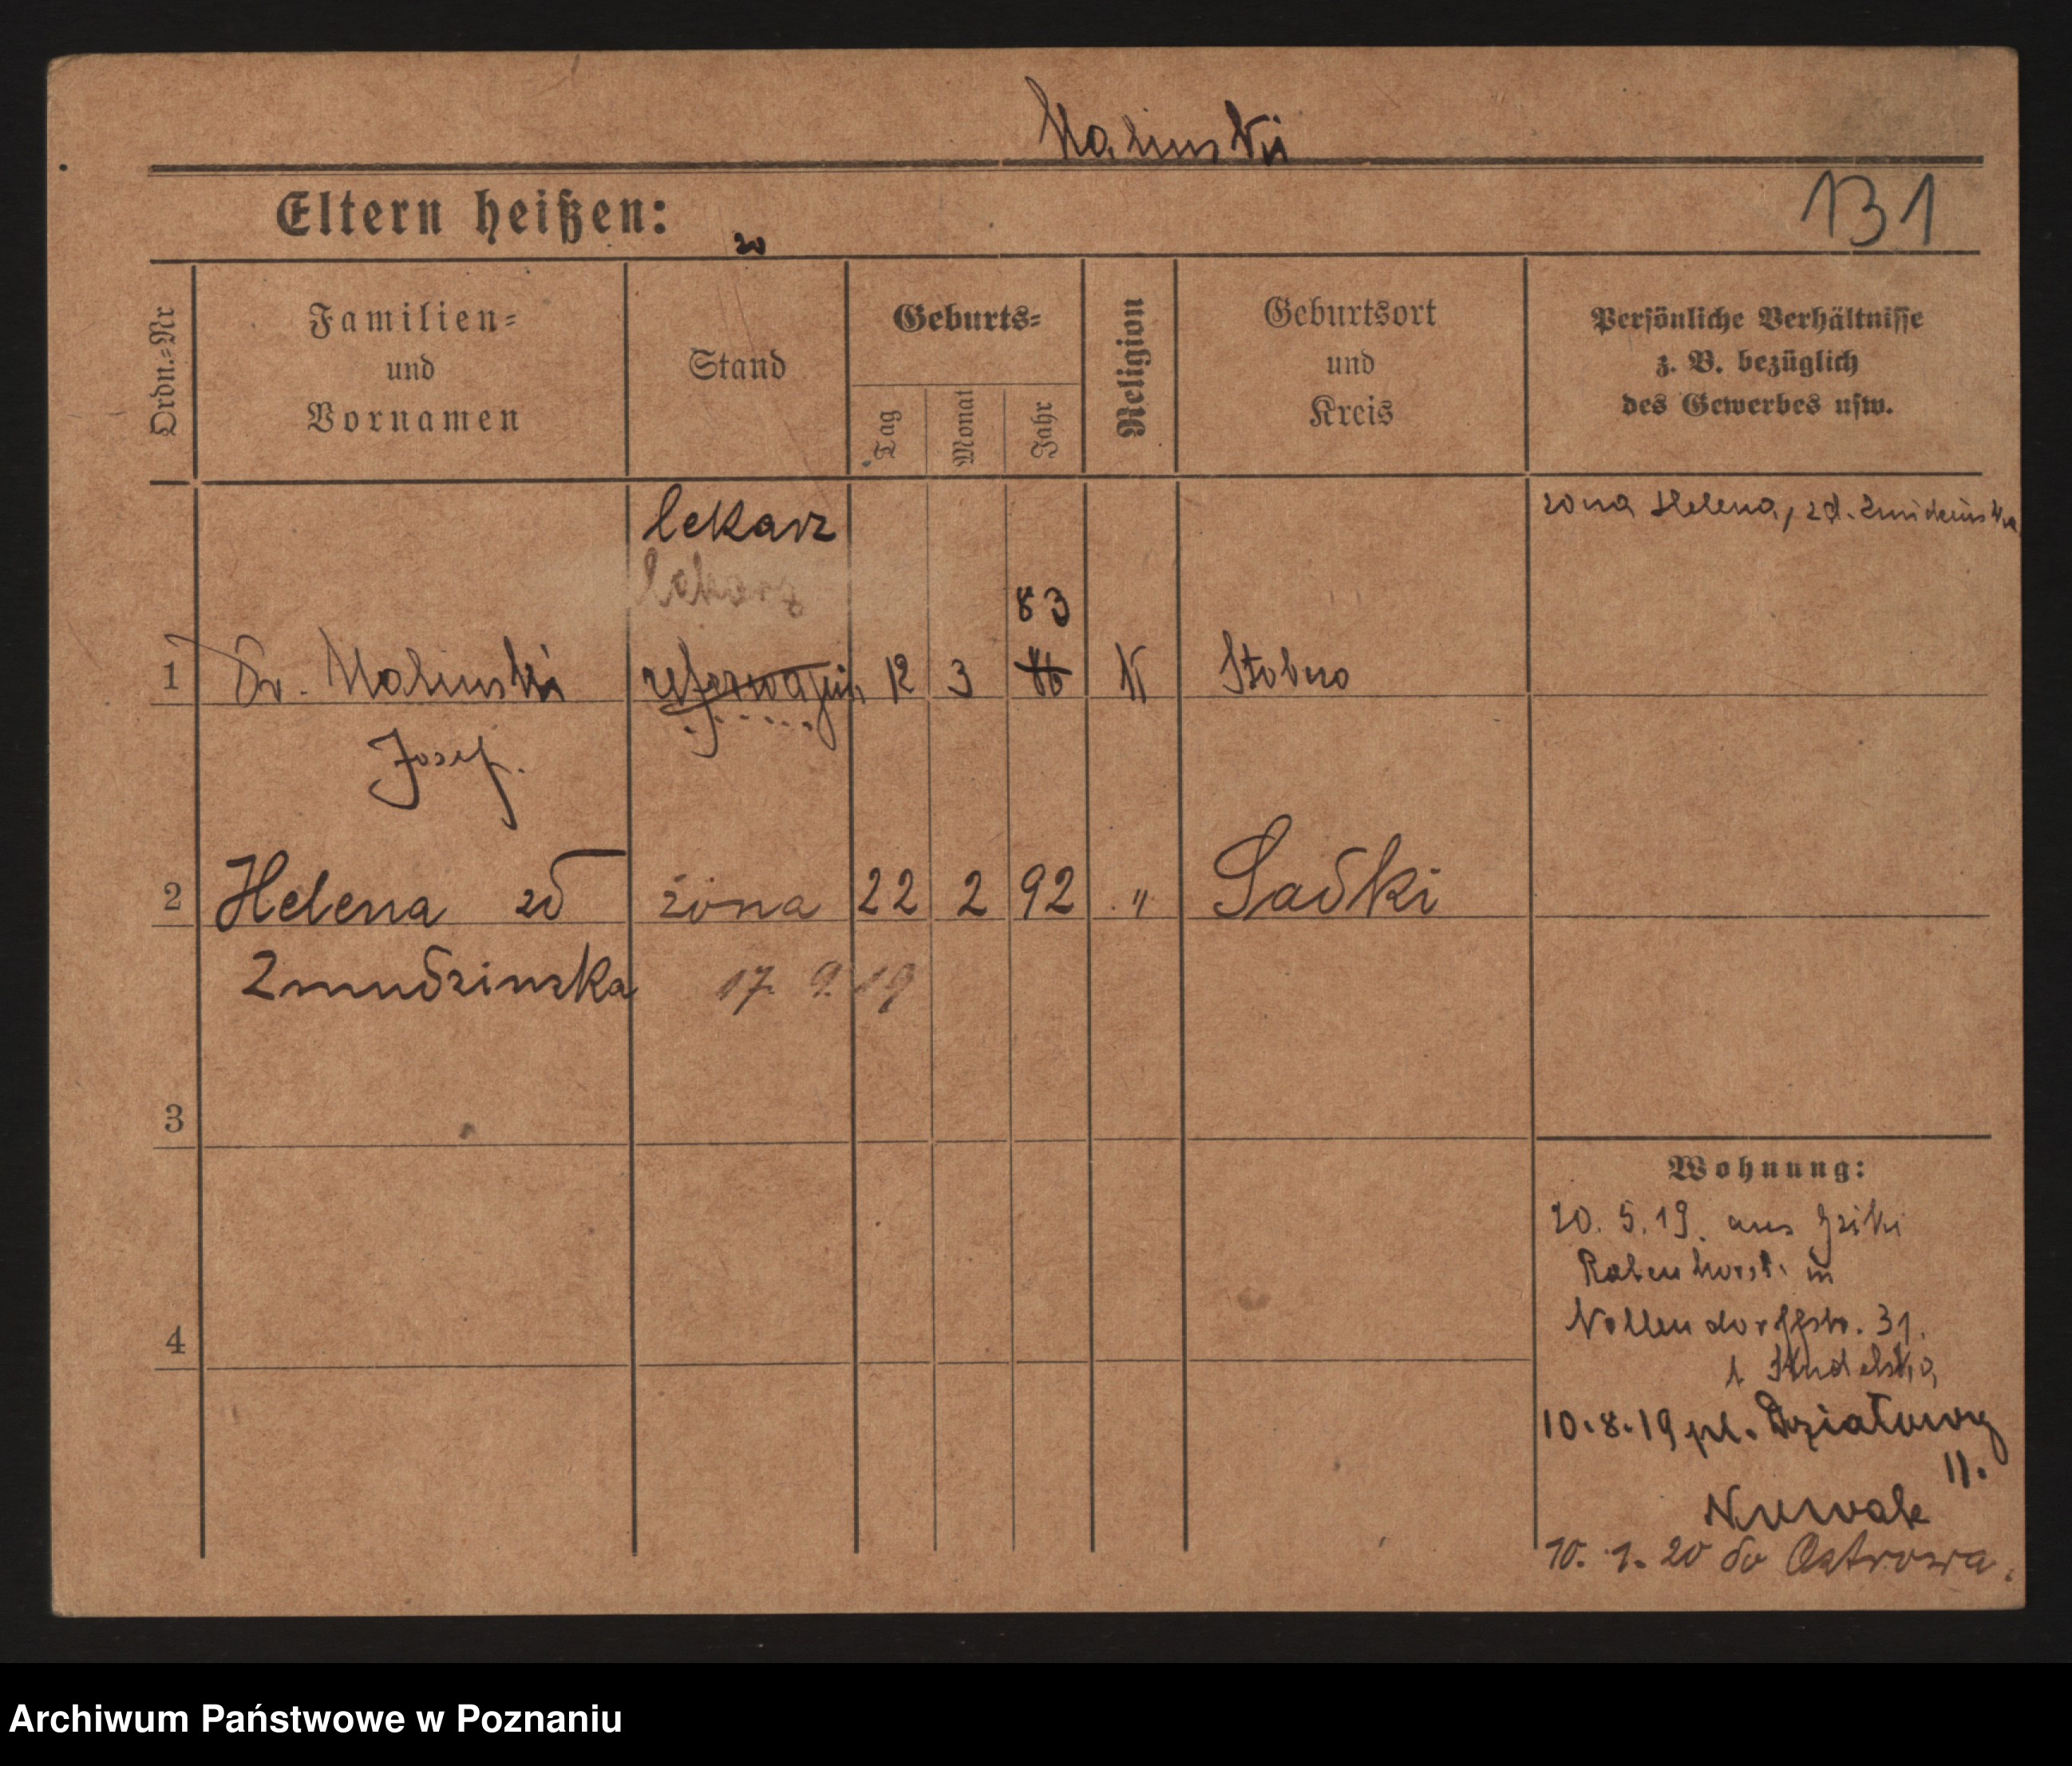 Malinski
Eltern heißen:
131
20
Ordn.=Nr
Familien=
und
Vornamen
Stand
Geburts=
Tag
Monat
Jahr
Religion
Geburtsort
und
Kreis
Persönliche Verhältnisse
z. B. bezüglich
des Gewerbes usw.
lekarz
zona Helena, zd.
lekarz
83
1 Dr. Malinski 12 3 K Stobno
Josef.
2 Helena zd żona 22 2 92 " Sadki
Zmudzinska 17. 9. 19
3
Wohnung:
20. 5. 19. aus
Rabenhorst. in
Nollendorffstr. 31.
4
10.8.19 pl. Działowy
11.
Nowak
10. 1. 20 do Ostrowa.
Archiwum Państwowe w Poznaniu